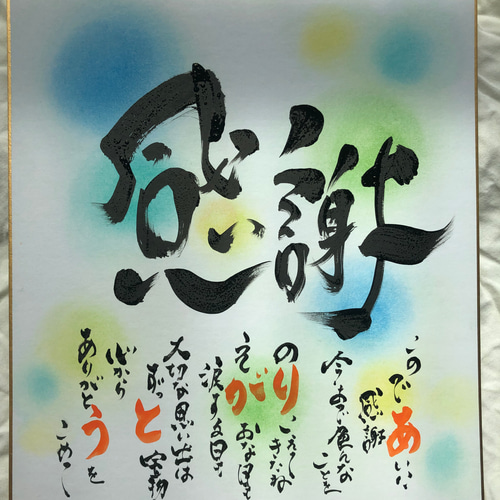 感謝
このであいに
感謝
今まで色んなことを
のりこえてきたね
えがおの日も
涙する日も
大切な思い出は
ずっと宝物
心から
ありがとうを
こめて